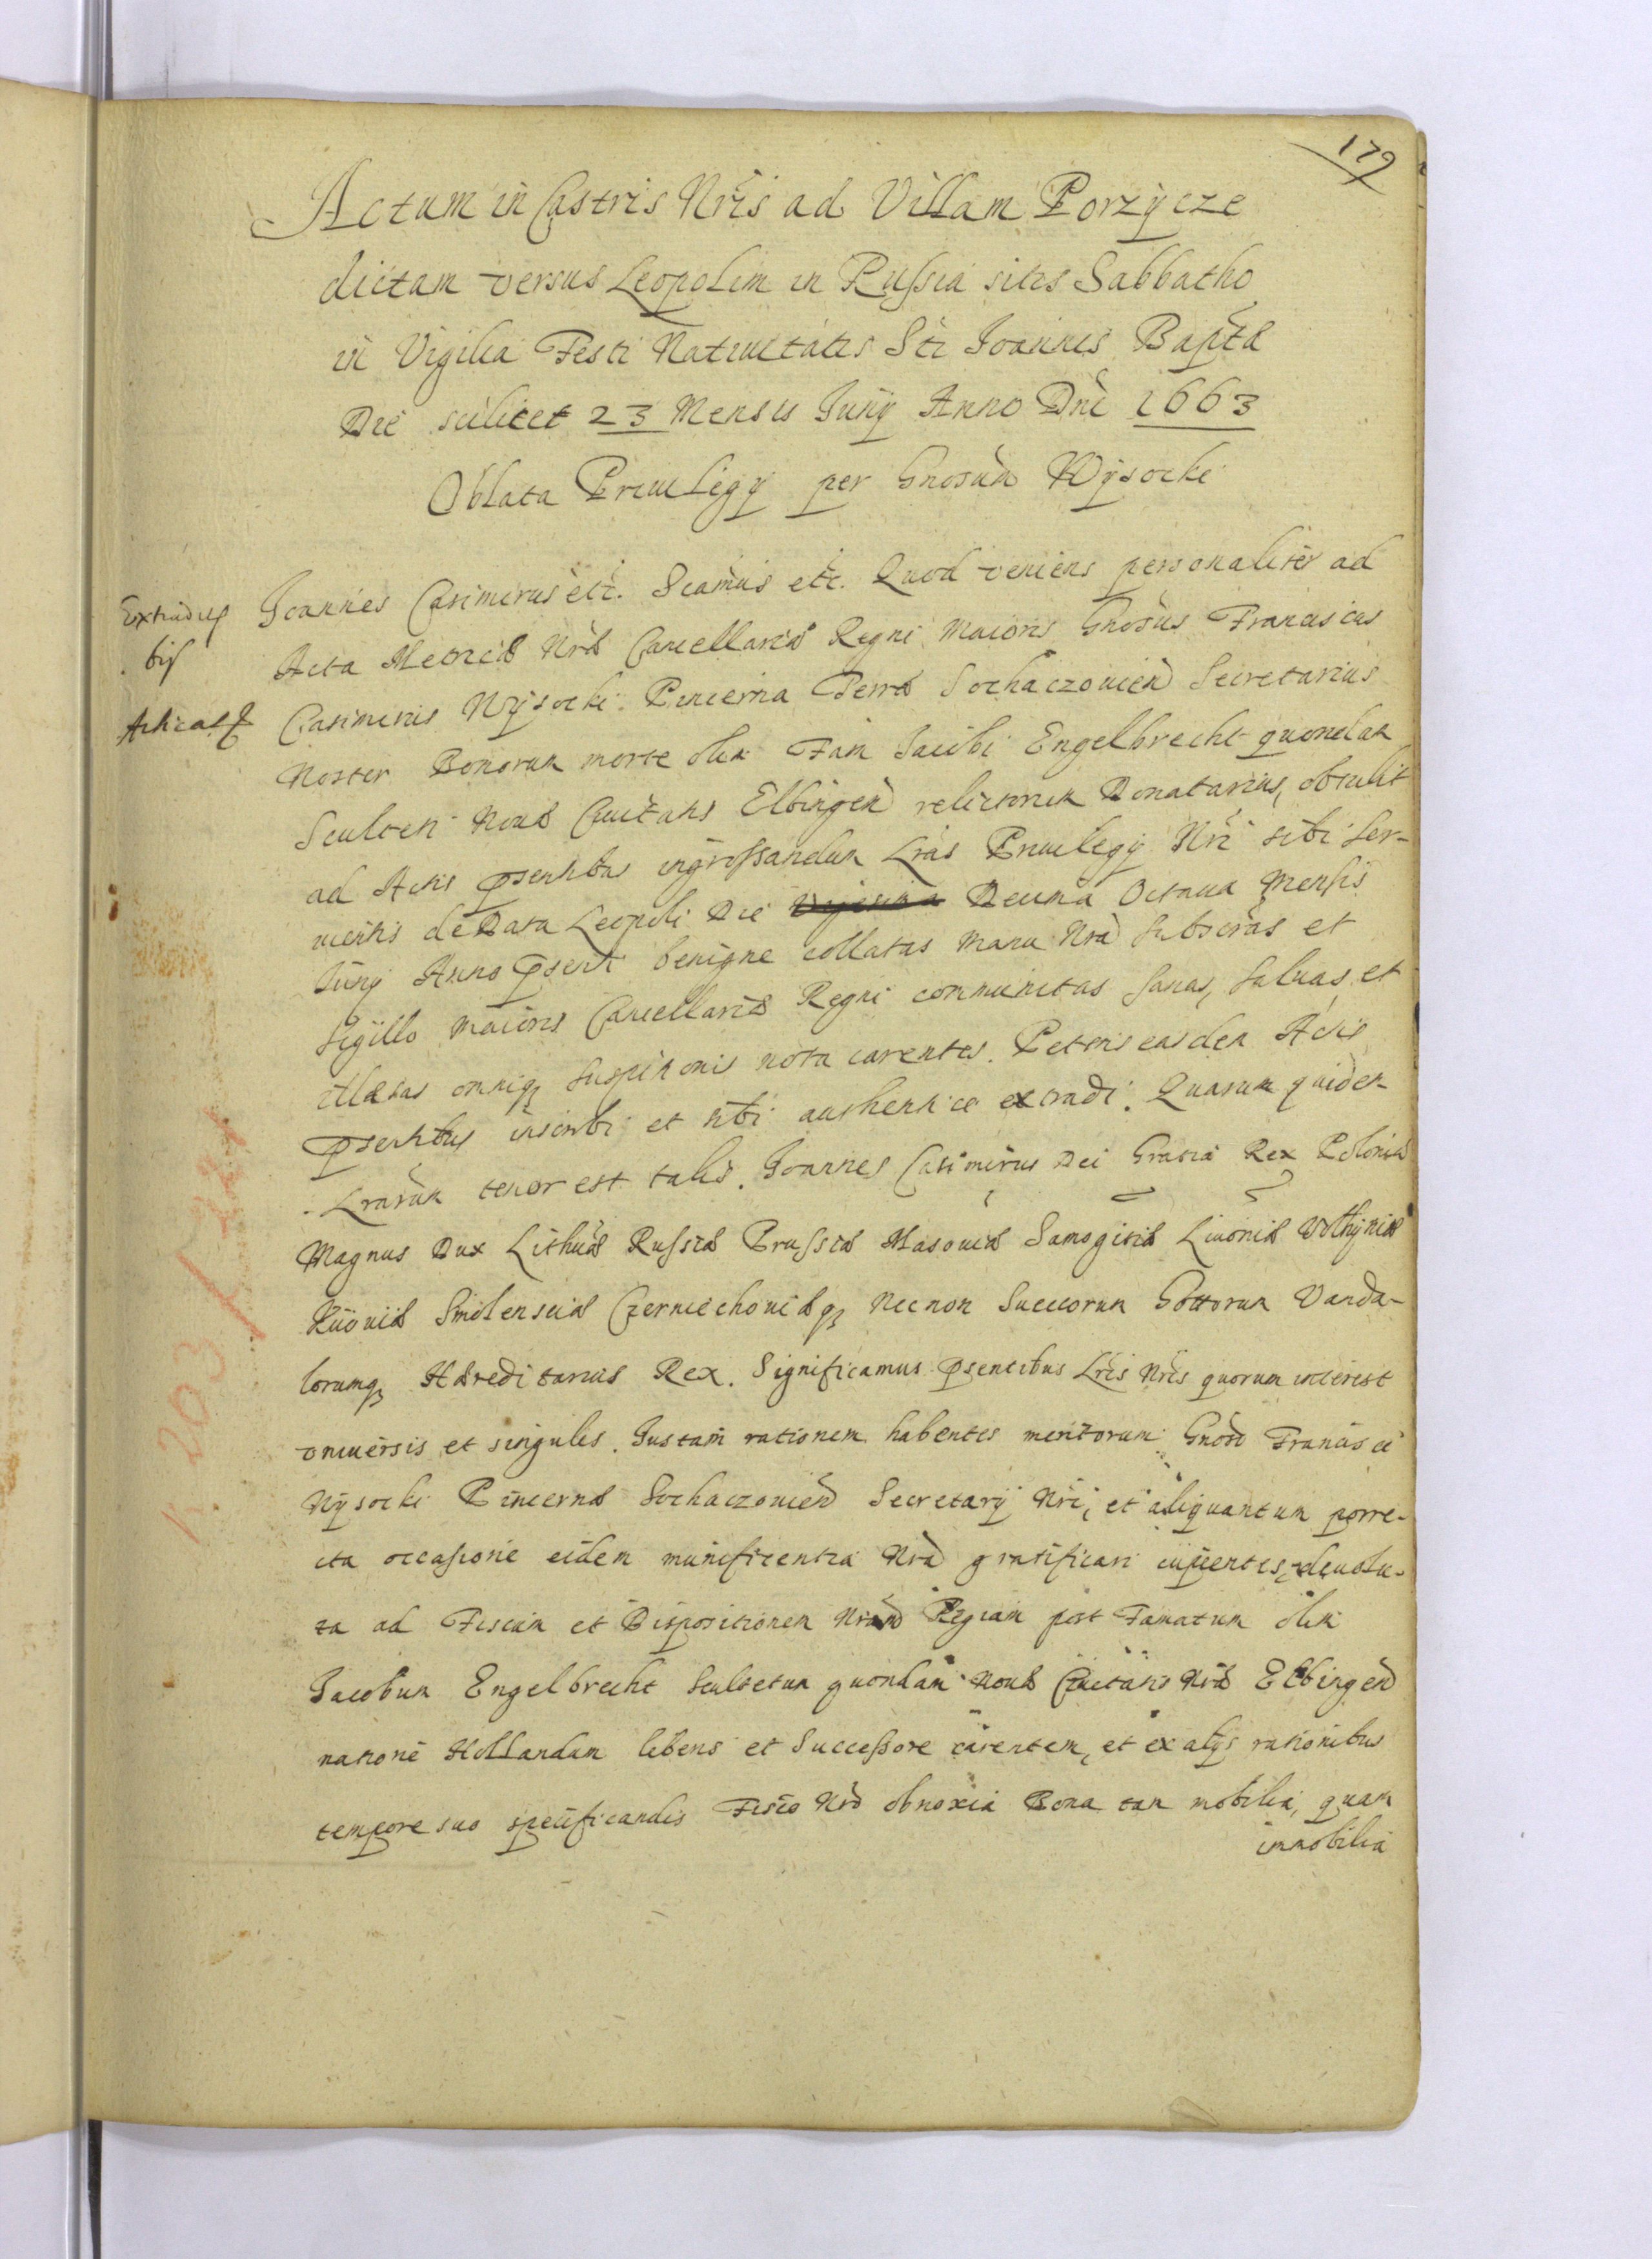 179
Actum in Castris Nris ad Villam Porzycze
dictam versus Leopolim in Russia sitis Sabbatho
in Vigilia Festi Natiuitatis Sti Joannis Baptæ
Die scilicet 23 Mensis Junij Anno Dni 1663
Oblata Priuilegij per Gnosum Wysocki
Joannes Casimirus etc. Seamus etc. Quod veniens personaliter ad
Extradita
bis
Acta Metricæ Nræ Cancellariæ Regni Maioris Gnosus Franciscus
Casimirus Wysocki Pincerna Terræ Sochaczouien Secretarius
Noster Bonorum morte olim Fam Jacobi Engelbrecht quondam
Sculteti Nouæ Ciuitatis Elbingen relictorum Donatarius, obtulit
ad Actis pesentibus ingrossandum Lras Priuilegij Nri sibi ser-
uientis de Data Leopoli Die Vigesima Decima Octaua Mensis
Junij Anno psenti benigne collatas manu Nra subscras et
sigillo Maioris Cancellariæ Regni communitas sanas, saluas et
illæsas omniq suspitionis nota carentes. Petens easdem Actis
psentibus inscribi et sibi authentice extradi. Quarum quidem
Lrarum tenor est talis. Joannes Casimirus Dei Gratia Rex Poloniæ
Magnus Dux Lithuæ Russiæ Prussiæ Masouiæ Samogitiæ Liuoniæ Volhyniæ
Kiiouiæ Smolensciæ Czerniechouiæq Necnon Suecorum Gottorum Vanda-
lorumq Hæreditarius Rex. Significamus psentibus Lris Nris quorum interest
vniuersis et singulis. Justam rationem habentes meritorum Gnosi Francisci
Wysocki Pincernæ Sochaczouien Secretarij Nri, et aliquantum porre-
cta occasione eidem munificentia Nra gratificari cupientes, deuolu-
ta ad Fiscum et Dispositionem Nram Regiam post Famatum olim
Jacobum Engelbrecht Scultetum quondam Nouæ Ciuitatis Nræ Elbingen
natione Hollandum liberis et Successore carentem, et ex alijs rationibus
tempore suo specificandis Fisco Nro obnoxia Bona tam mobilia, quam
immobilia